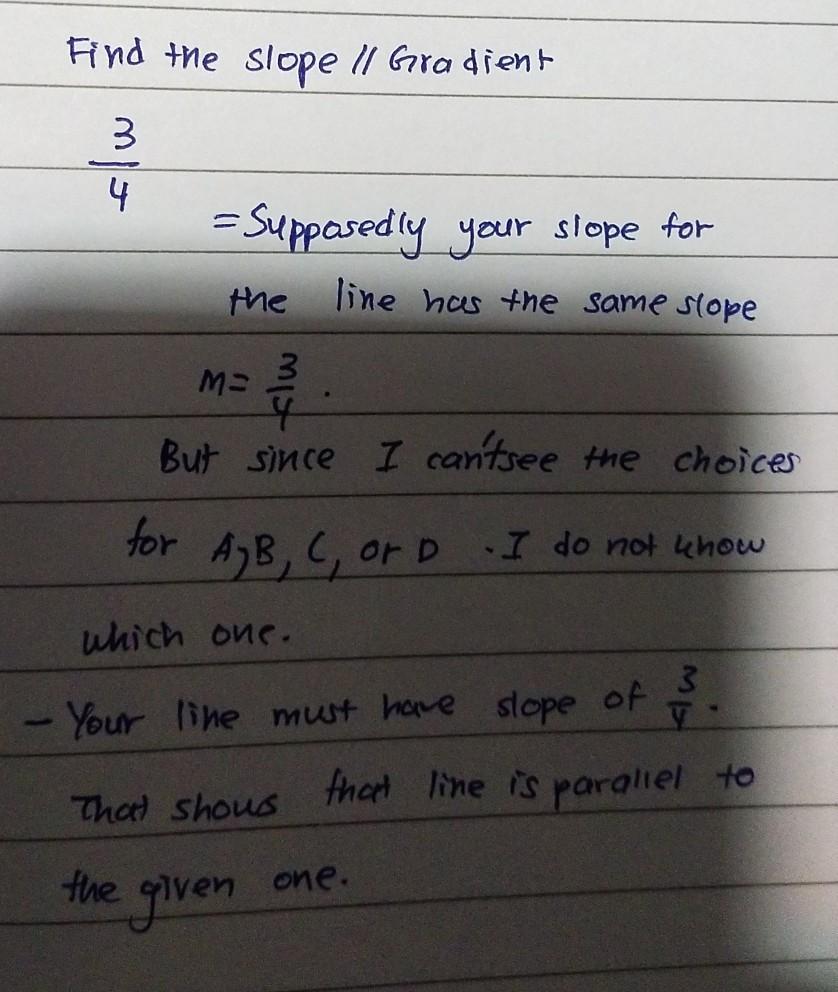 Find the slope // Gradient
3
4
= Supposedly your slope for
the line has the same slope
m= 3/4 .
But since I can'tsee the choices
for A,B, C, or D . I do not know
which one.
- Your line must have slope of 3/4 .
That shows that line is parallel to
the given one.